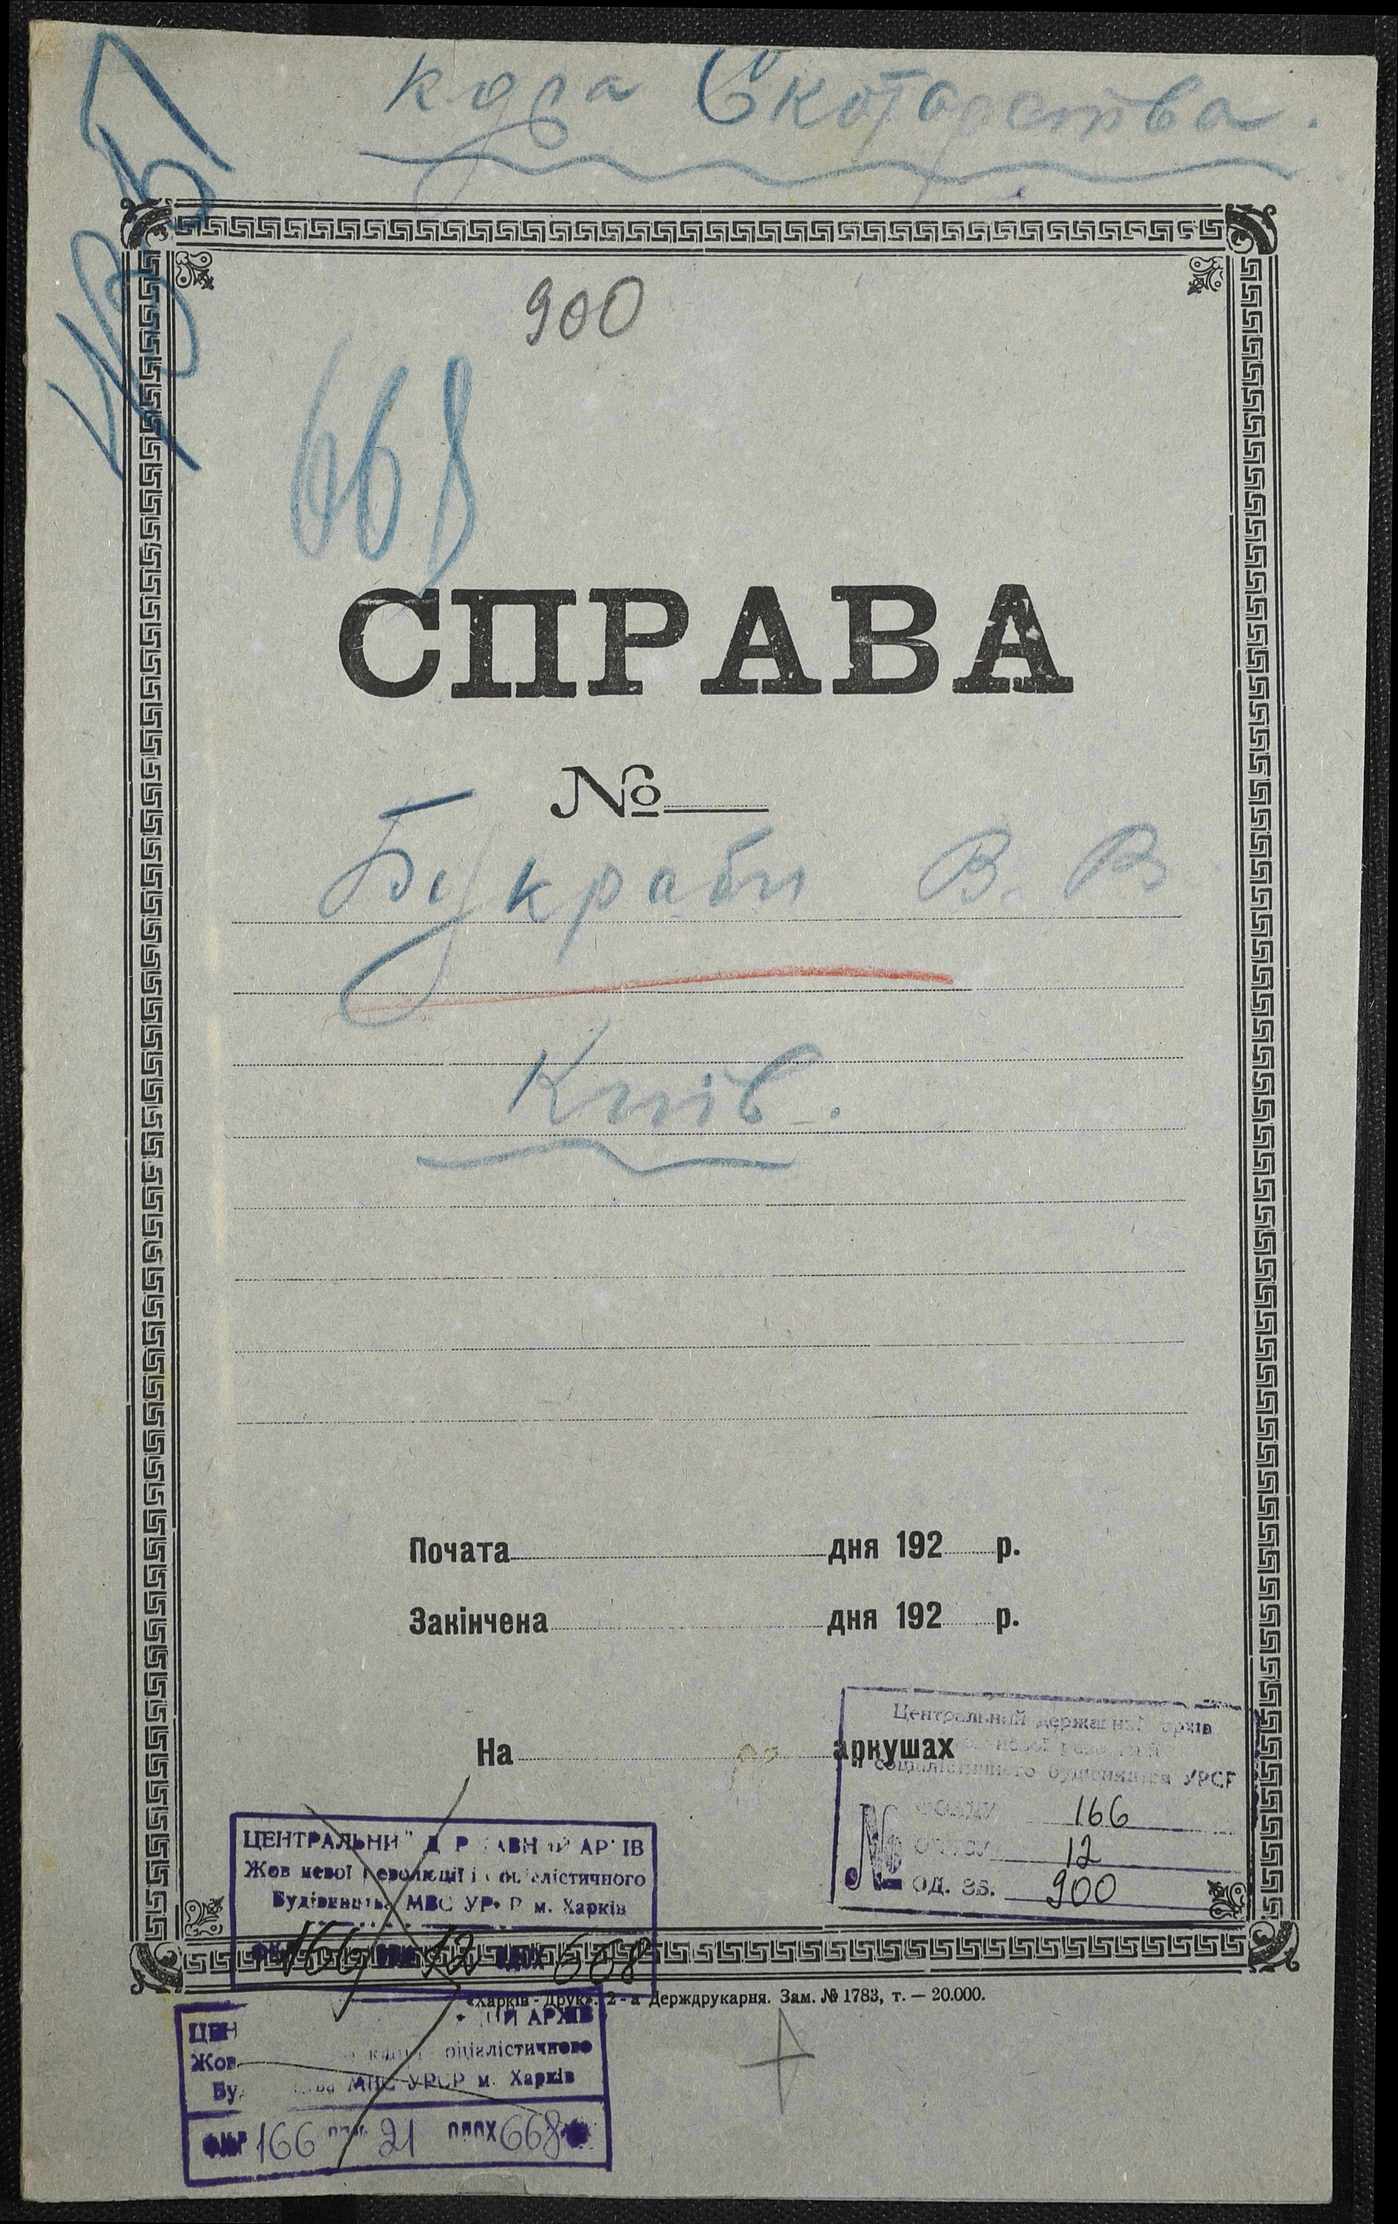 Скотарства.
900
668
СПРАВА
№
Букраби В. В
Київ.
Почата дня 192 р.
Закінчена дня 192 р.
На аркушах
Центральний державний архів
соціалістичного будівництва УРСР
№ фонду 166
опису 12
од. зб. 900
ЦЕНТРАЛЬНИЙ ДЕРЖАВНИЙ АРХІВ
Жовтневої революції і соціалістичного
Будівництва МВС УРСР м. Харків
166 12 668
«Харків-Друк». 2-а Держдрукарня. Зам. № 1783, т. — 20.000.
АРХІВ
Жов соціалістичного
МВС УРСР м. Харків
166 21 668